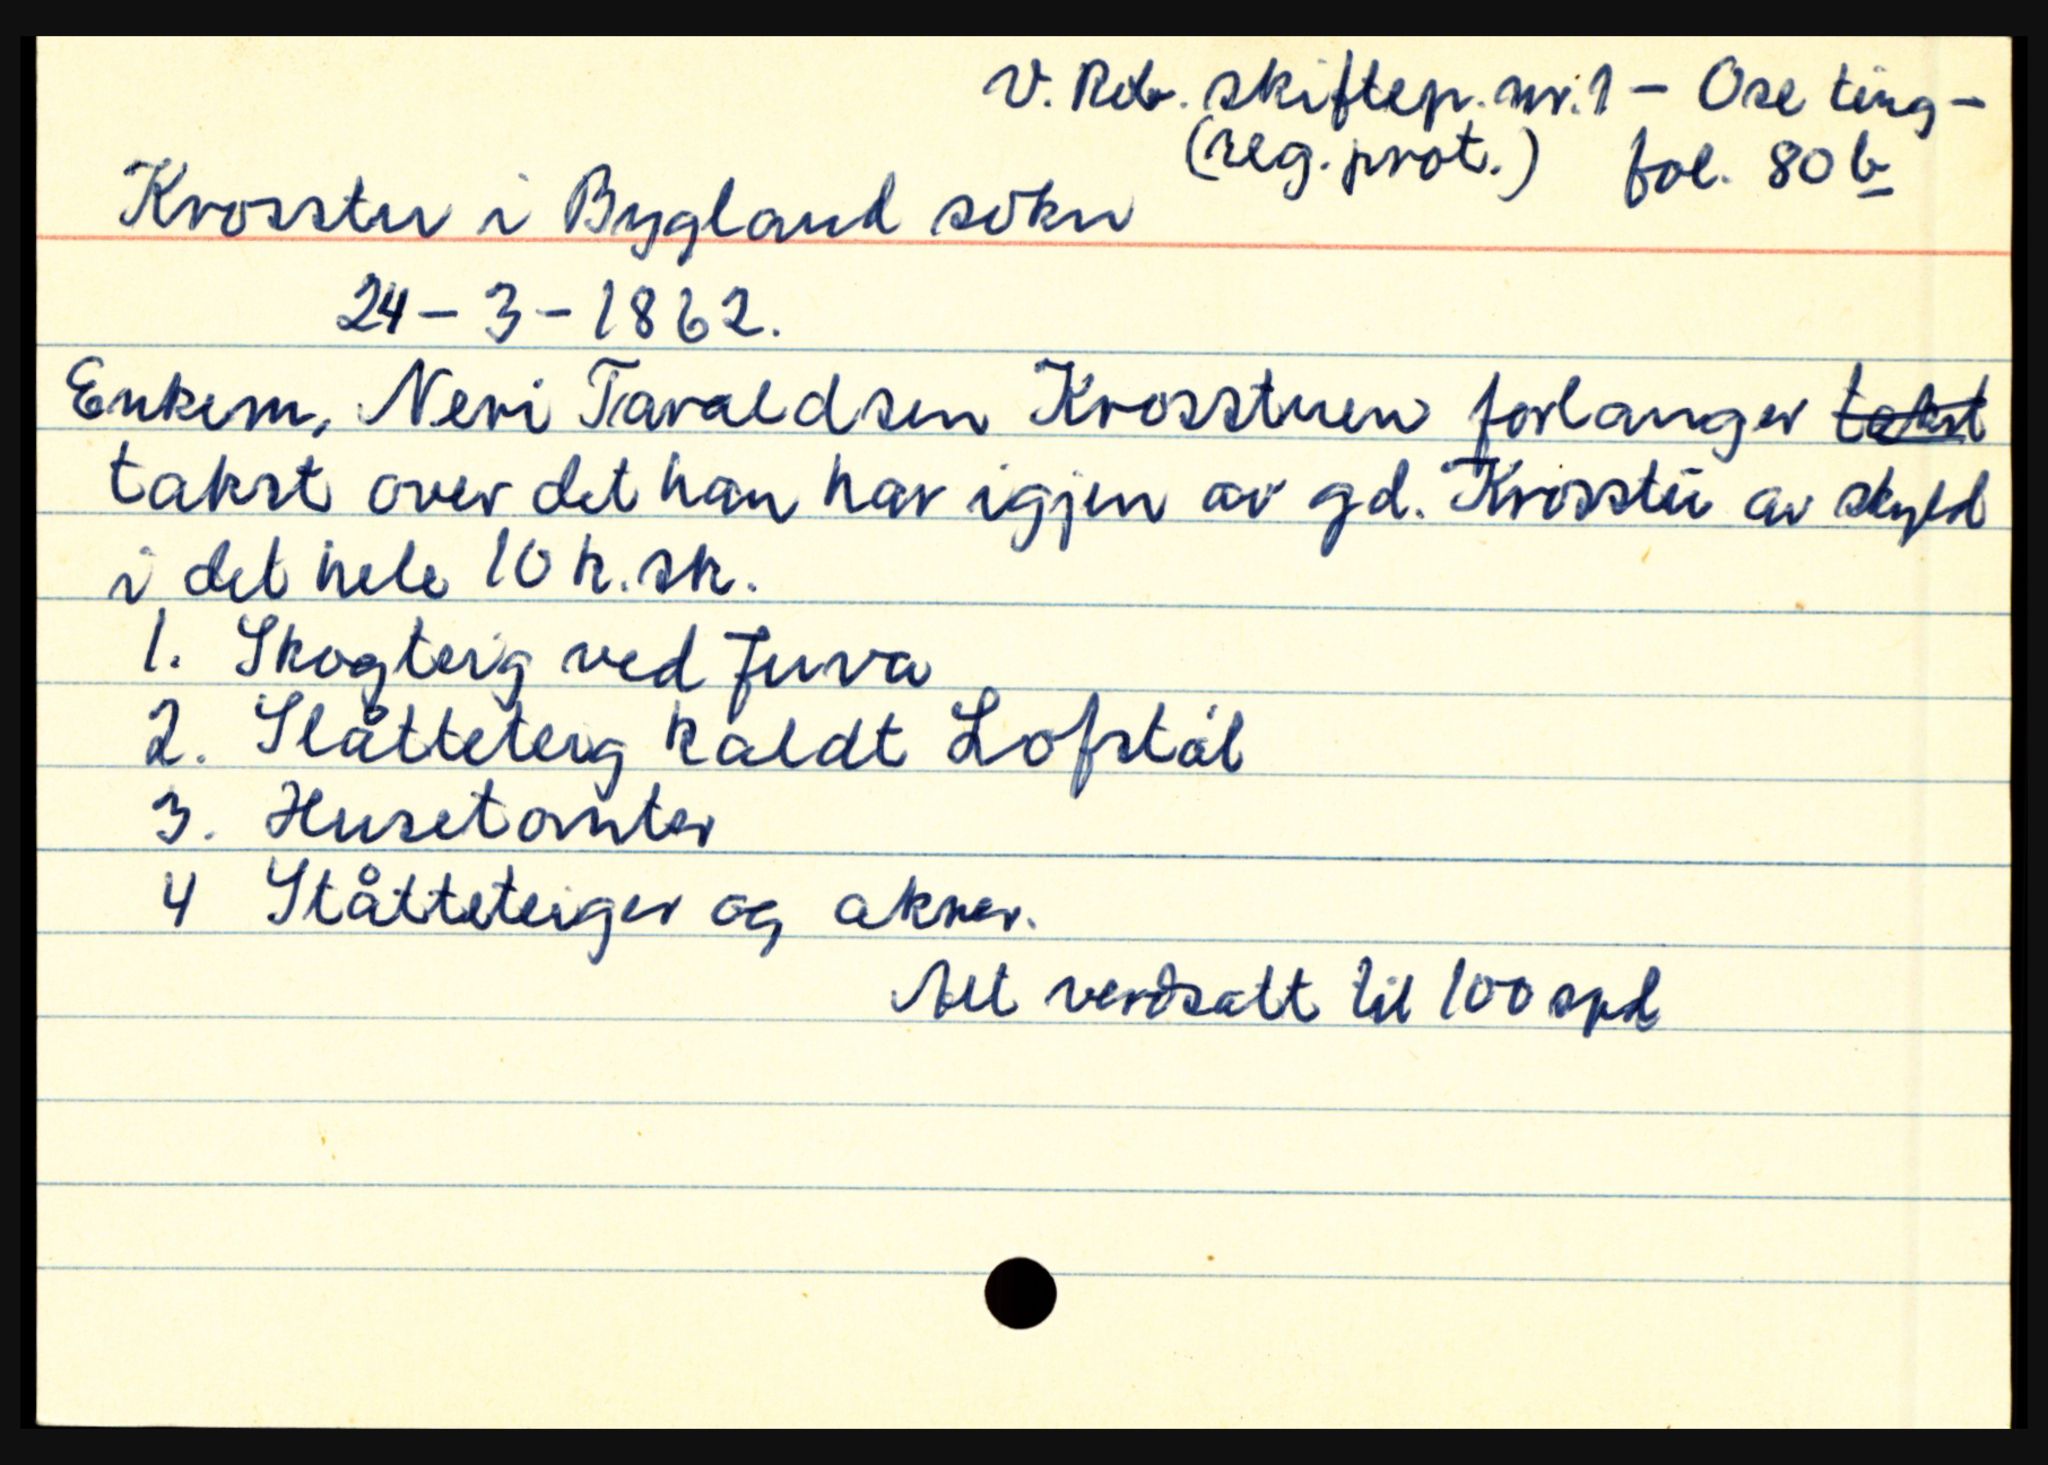 V. Rdb. skiftep. nr. 1 – Ose ting –
(reg. prot.) fol. 80 b
Krosstu i Bygland sökn
24 – 3 – 1862.
Enkem. Neri Taraldsen Krosstuen forlanger takst
takst over det han har igjen av gd. Krosstu av skyld
i det hele 10 k. sk.
1. Skogteig ved Juva
2. Slåtteteig kaldt Lofstål
3. Husetomter
4 Slåtteteiger og akrer.
Alt verdsatt til 100 spd